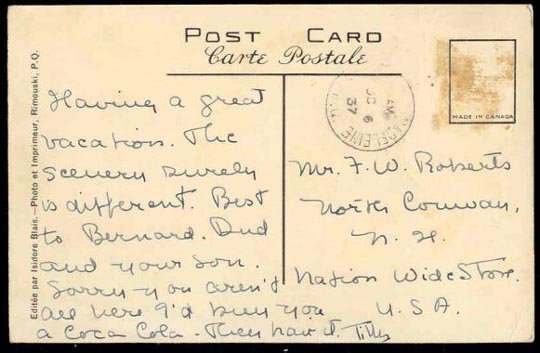 POST CARD
Carte Postale
MADE IN CANADA
Having a great
vacation. The
scenery surely
is different. Best
to Bernard. Dud
and your son.
Sorry you aren't
all here I'd buy you
a Coca Cola - Then have it. Tilly
Mr. F. W. Roberts
North Conway,
N. H.
Nation Wide Store.
U. S. A.
Editée par Isidore Blais.—Photo et Imprimeur, Rimouski, P.Q.
37